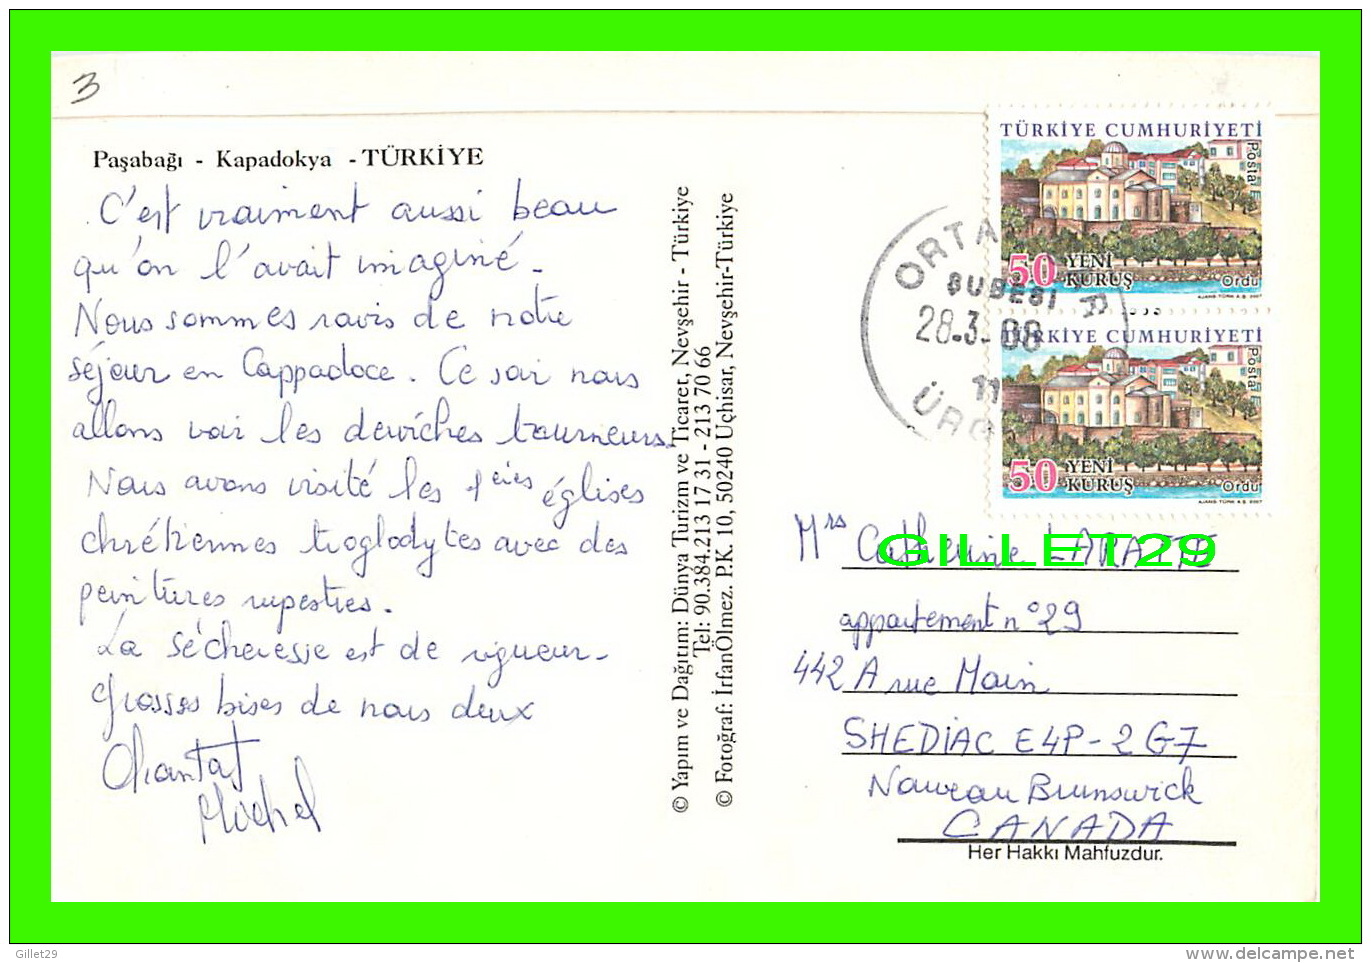 3
Paşabağı - Kapadokya - TÜRKİYE
C'est vraiment aussi beau
qu'on l'avait imaginé.
Nous sommes ravis de notre
séjour en Cappadoce. Ce soir nous
allons voir les derviches tourneurs.
Nous avons visité les 1ères églises
chrétiennes troglodytes avec des
peintures rupestres.
La sécheresse est de rigueur.
Grosses bises de nous deux
Chantal
Michel
© Yapım ve Dağıtım: Dünya Turizm ve Ticaret, Nevşehir - Türkiye
Tel: 90.384.213 17 31 - 213 70 66
© Fotoğraf: İrfanÖlmez. P.K. 10, 50240 Uçhisar, Nevşehir-Türkiye
TÜRKİYE CUMHURİYETİ
Posta
50 YENİ KURUŞ
Ordu
AJANS-TÜRK A.Ş. 2007
TÜRKİYE CUMHURİYETİ
Posta
50 YENİ KURUŞ
Ordu
AJANS-TÜRK A.Ş. 2007
ŞUBESİ
28.3.08
11
Mrs Catherine
GILLET29
appartement n°29
442 A rue Main
SHEDIAC E4P-2G7
Nouveau Brunswick
CANADA
Her Hakkı Mahfuzdur.
Gillet29
www.delcampe.net